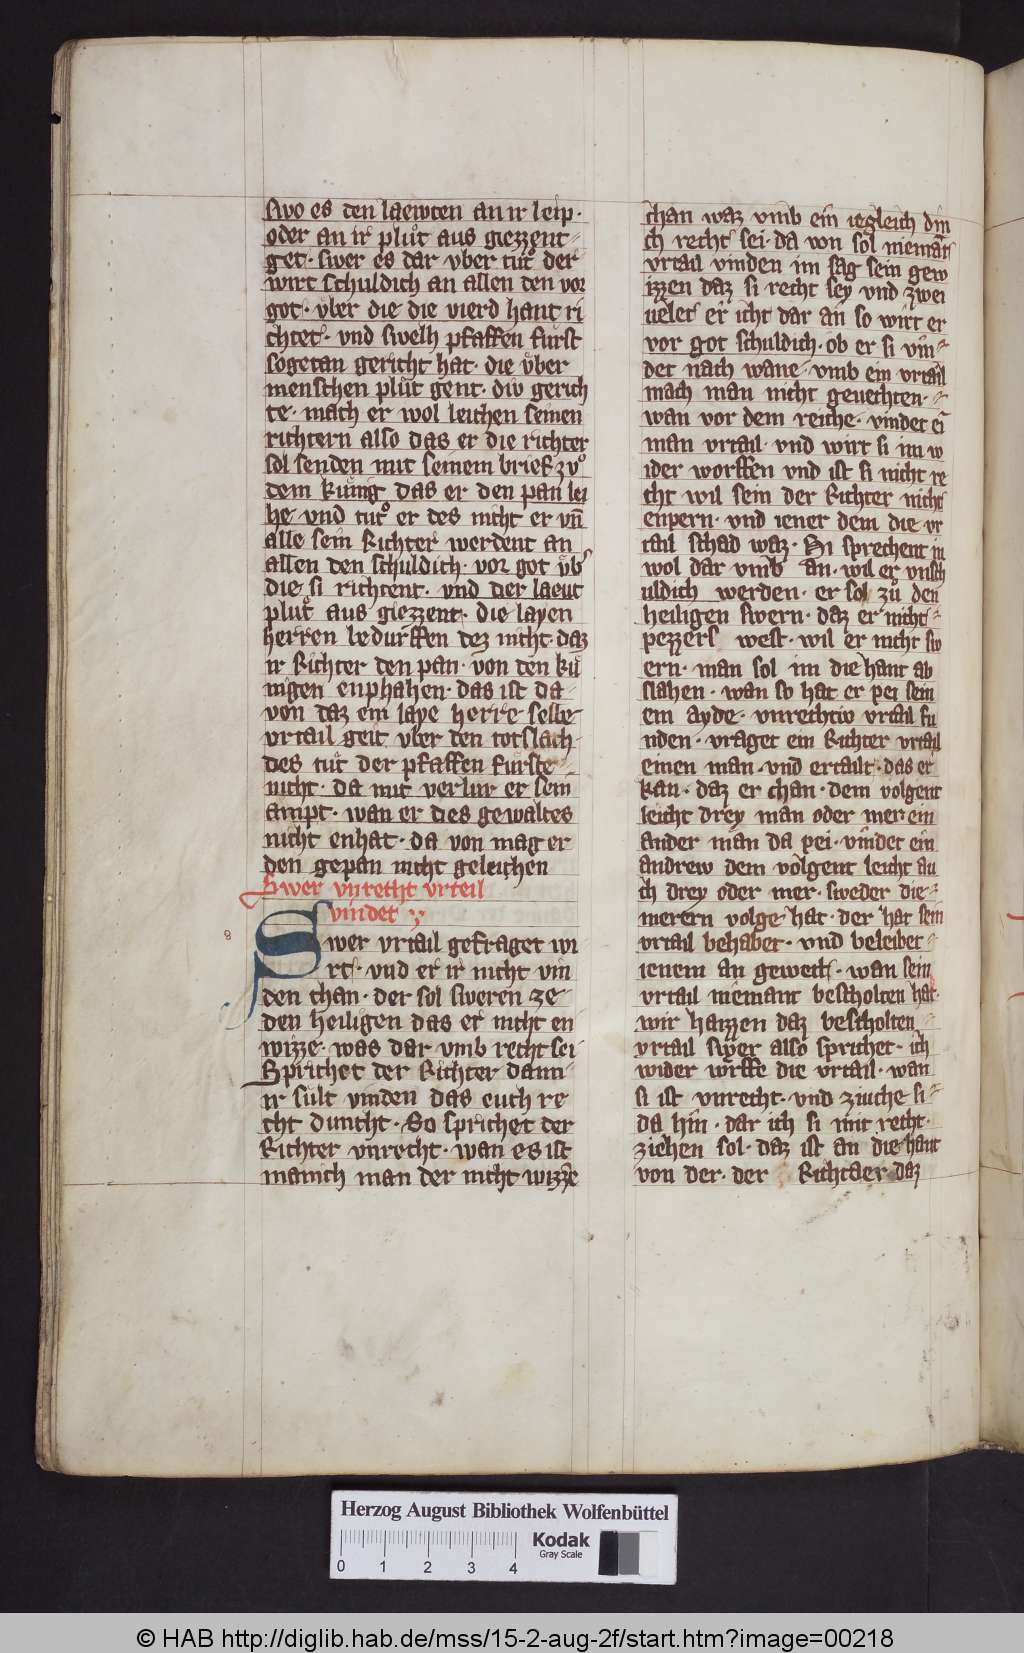 swo es den laewten an ir leip·
oder an ir pluͦt aus giezzent
get· swer es dar vber tuͦt der
wirt schuldich an allen den vor
got· vͤber die die vierd hant ri
chtet· vnd swelh pfaffen furst
sogetan gericht hat· die vͤber
menschen pluͦt gent· diw gerich
te· mach er wol leichen seinen
richtern also das er die richter
sol senden mit seinem brief zvͦ
dem kuͤnig das er den pan lei
he· vnd tuͦt er des nicht er vn̄
alle sein Richter werdent an
allen den schuldich· vor got vͤb᾽
die si richtent· vnd der laeut
pluͦt aus giezzent· die layen
herren bedurffen dez nicht· daz
ir Richter den pan· von den kuͤ
nigen enphahen· das ist da
von daz ein laye herre selbe
vrtail geit vber den totslach·
des tuͦt der pfaffen fuͤrste
nicht· da mit verlur er sein
ampt· wan er des gewaltes
nicht enhat· da von mag er
den gepan nicht geleichen
Swer vnrecht vrteil
vindet
8
Swer vrtail gefraget wi
rt· vnd er ir nicht vin
den chan· der sol sweren ze
den heiligen das er nicht en
wizze· was dar vmb recht sei
Sprichet der Richter dann
ir sult vinden das euch re
cht duncht· So sprichet der
Richter vnrecht· wan es ist
manich man der nicht wizze
chan waz vmb ein iegleich din
ch recht sei· da von sol nieman
vrtail vinden im sag sein gew
izzen daz si recht sey vnd zwei
uelet er icht dar an so wirt er
vor got schuldich· ob er si vin
det nach wane· vmb ein vrtail
mach man nicht geuechten·
wan vor dem reiche· vindet ei
man vrtail· vnd wirt si im w
ider worffen vnd ist si nicht re
cht wil sein der Richter nicht
enpern· vnd iener dem die vr
tail schad waz· Si sprechent in
wol dar vmb an· wil er vnsch
uldich werden· er sol zuͦ den
heiligen swern· daz er nicht
pezzers west· wil er nicht sw
ern· man sol im die hant ab
slahen· wan so hat er pei sein
em ayde· vnrechtiv vrtail fu
nden· vraget ein Richter vrtail
einen man· vnd ertailt· das er
kan· daz er chan· dem volgent
leicht drey man oder mer ein
ander man da pei· vindet ein
andrew dem volgent leicht au
ch drey oder mer· sweder die
merern volge hat· der hat sein
vrtail behabet· vnd beleibet
ienem an gewett· wan sein
vrtail niemant bescholten hat·
wir haizzen daz bescholten
vrtail swer also sprichet· ich
wider wirffe die vrtail· wan
si ist vnrecht· vnd ziuche si
da hin· dar ich si mit recht·
ziehen sol· daz ist an die hant
von der· der Richtaer daz
Herzog August Bibliothek Wolfenbüttel
Kodak
Gray Scale
0 1 2 3 4
© HAB http://diglib.hab.de/mss/15-2-aug-2f/start.htm?image=00218